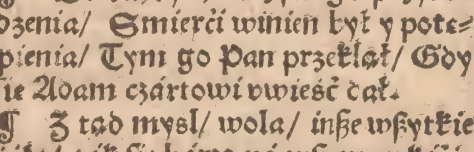 dzenia/ Smierći winien był y potę⸗
pienia/ Tym go Pan przeklął/ Gdy
sie Adam czártowi vwieść dał.
¶ Z tąd mysl/ wola/ inße wßytkie